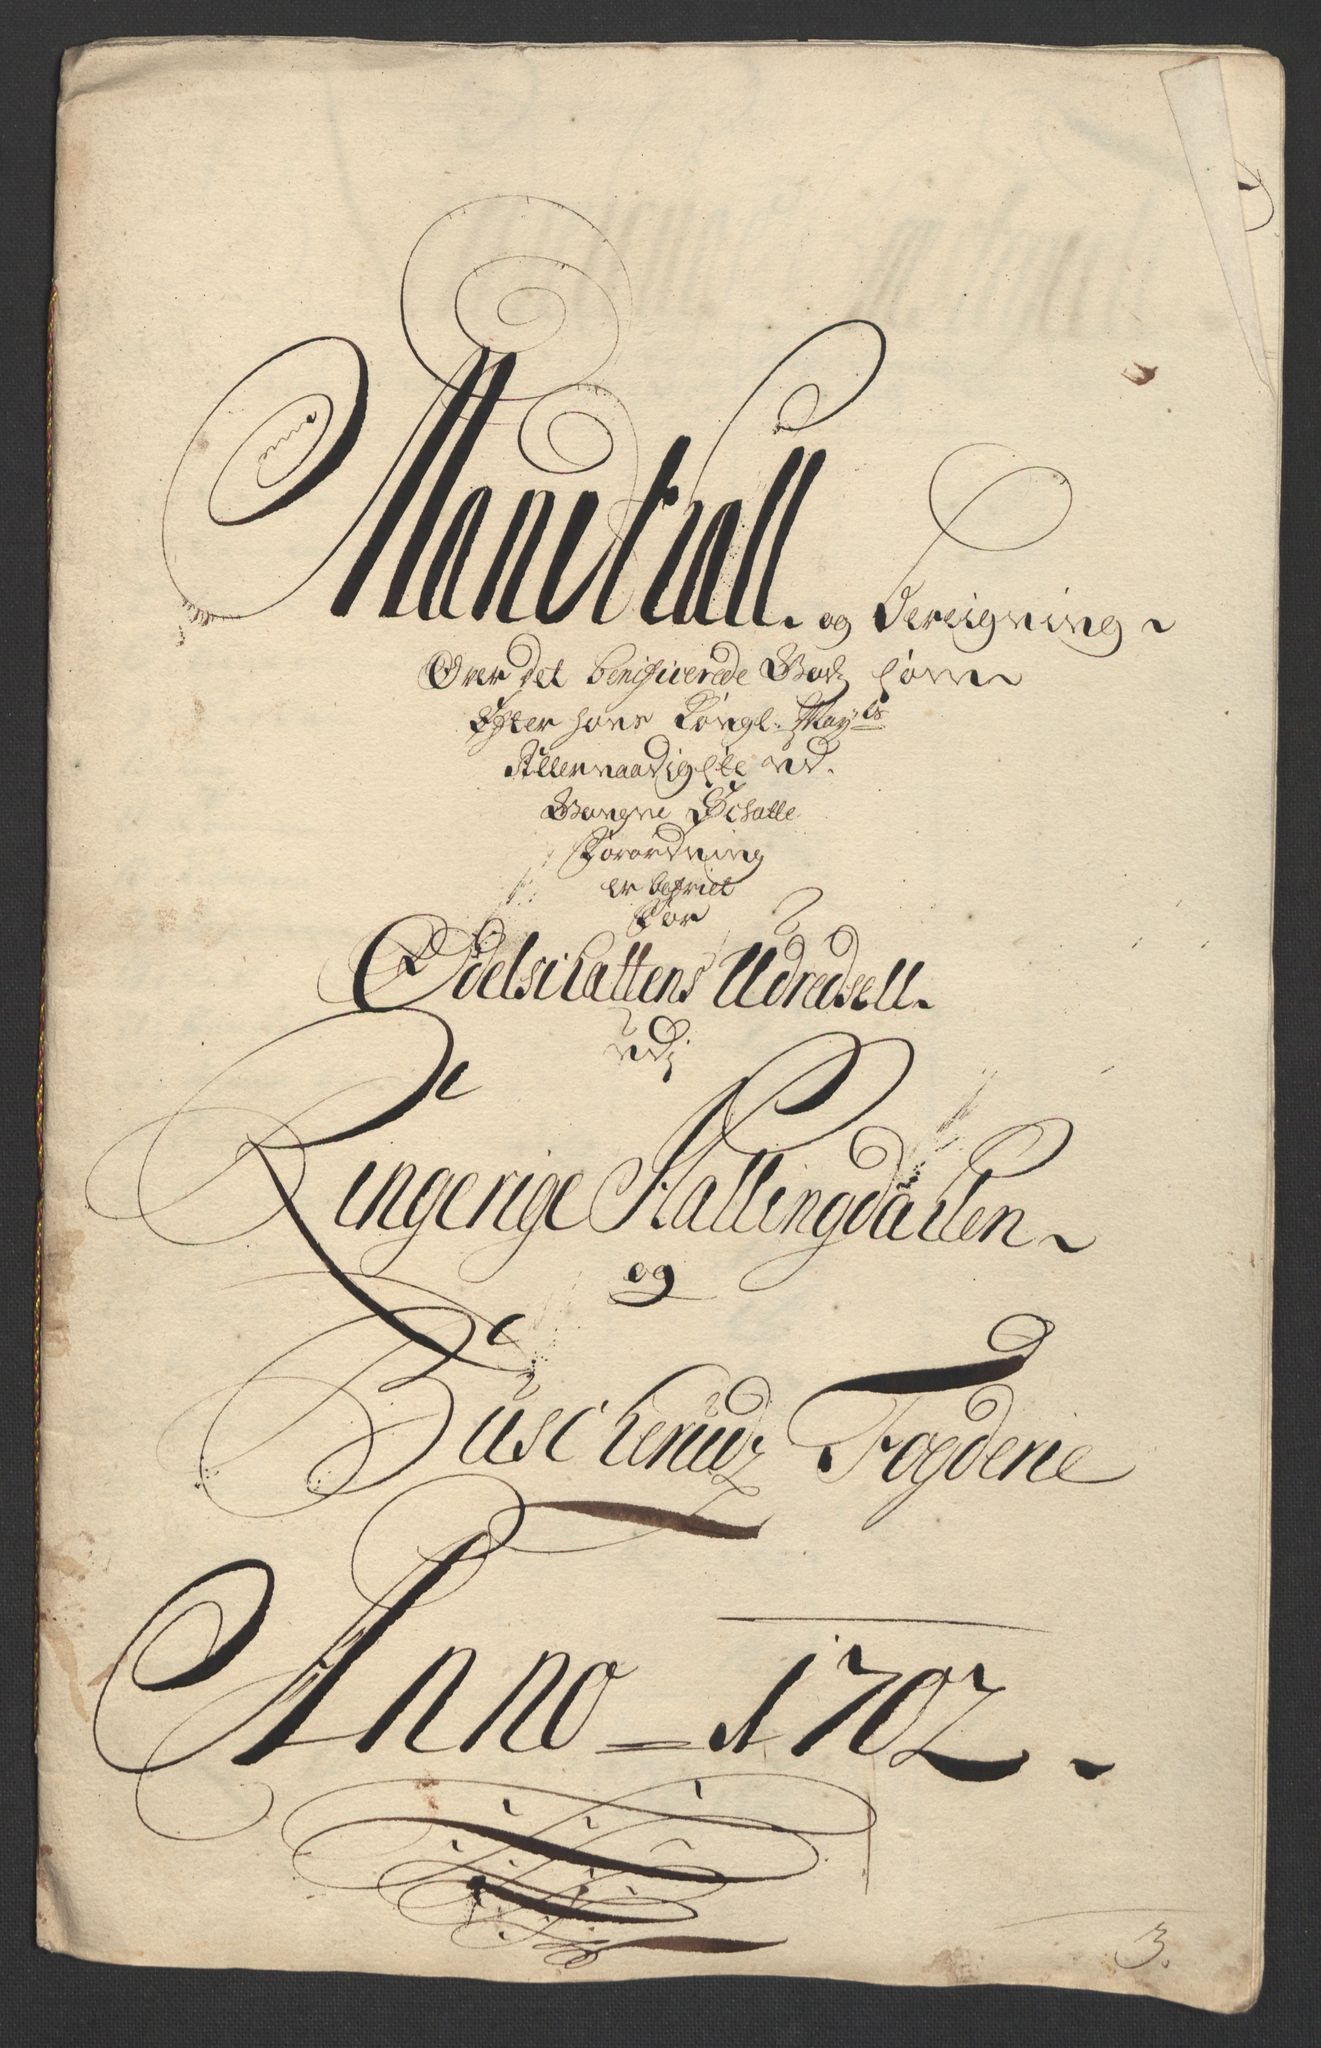 Mandtall og Bereigning
Over det beneficerede Godz som
Efter hans Kongl. May.ts
Allernaadigste ud
Gangne Schatte
Forordning
er befriet
For
Odelschattens Udredsell
udj
Ringerige Hallingdahlen
og
Buscheruds Fogderie
Anno = 1702
3.